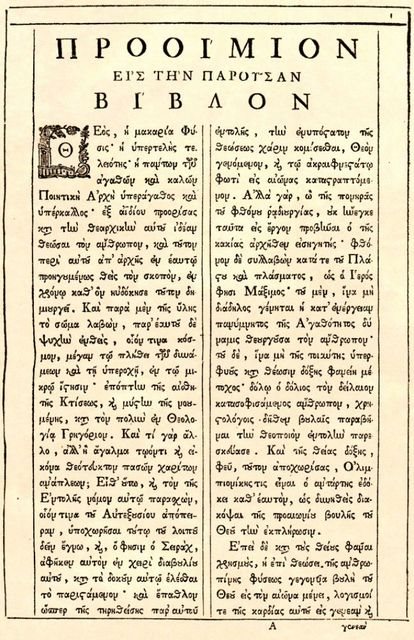 1
ΠΡΟΟΙ΄ΜΙΟΝ
ΕΙΣ ΤΗΝ ΠΑΡΟΥΣΑΝ
ΒΙΒΛΟΝ
Θεὸς, ἡ μακαρία Φύ-
σις· ἡ ὑπερτελὴς τε-
λειότης· ἡ πάντων τῶν
ἀγαθῶν καὶ καλῶν
Ποιητικὴ Ἀρχὴ ὑπεράγαθος καὶ
ὑπέρκαλλος· ἐξ ἀϊδίου προορίσας
κατὰ τὴν θεαρχικὴν αὐτοῦ ἰδίαν
θεῶσαι τὸν ἄνθρωπον, καὶ τοῦτον
περὶ αὐτοῦ ἀπ' ἀρχῆς ἐν ἑαυτῷ
προηγουμένως θεὶς τὸν σκοπὸν, ἐν
χρόνῳ καθ' ὃν ηὐδόκησε τοῦτον δη-
μιουργεῖ. Καὶ παρὰ μὲν τῆς ὕλης
τὸ σῶμα λαβὼν, παρ' ἑαυτοῦ δὲ
ψυχὴν ἐνθεὶς, οἷόν τινα κόσ-
μον, μέγαν τῷ πλήθει τῶν δυνά-
μεων καὶ τῇ ὑπεροχῇ, ἐν τῷ μι-
κρῷ ἵστησιν· ἐπόπτην τῆς αἰσθη-
τῆς Κτίσεως, καὶ μύστην τῆς νοου-
μένης, κατὰ τὸν πολὺν ἐν Θεολο-
γίᾳ Γρηγόριον. Καὶ τί γὰρ ἄλ-
λο, ἀλλ' ἢ ἄγαλμα τῷόντι καὶ εἰ-
κόνα θεότευκτον πασῶν χαρίτων
ἀνάπλεων; Εἶθ' οὕτω, καὶ τὸν τῆς
Ἐντολῆς νόμον αὐτῷ παρασχὼν,
οἷόν τινα τοῦ Αὐτεξουσίου ἀπόπει-
ραν, ὑποχωρῆσαι τούτῳ τοῦ λοιποῦ
δεῖν ἔγνω, καὶ, ὅ φησιν ὁ Σειρὰχ,
ἀφῆκεν αὐτὸν ἐν χειρὶ διαβουλίου
αὐτοῦ, κατὰ τὸ δοκοῦν αὐτῷ ἑλέσθαι
τὸ παριστάμενον· καὶ ἔπαθλον
ὥσπερ τῆς τηρηθείσης παρ' αὐτοῦ
ἐντολῆς, τὴν ἐνυπόστατον τῆς
θεώσεως χάριν κομίσεσθαι, Θεὸν
γενόμενον, καὶ τῷ ἀκραιφνεστάτῳ
φωτὶ εἰς αἰῶνας καταστραπτόμε-
νον. Ἀλλὰ γὰρ, ὢ τῆς πονηρᾶς
τοῦ φθόνου ῥᾳδιουργίας, οὐκ ἤνεγκε
ταῦτα εἰς ἔργον προβῆναι ὁ τῆς
κακίας ἀρχῆθεν εἰσηγητής· Φθό-
νον δὲ συλλαβὼν κατά τε τοῦ Πλά-
στου καὶ πλάσματος, ὡς ὁ Ἱερός
φησι Μάξιμος· τοῦ μὲν, ἵνα μὴ
διάδηλος γένηται ἡ κατ' ἐνέργειαν
πανύμνητος τῆς Ἀγαθότητος δύ-
ναμις θεουργοῦσα τὸν ἄνθρωπον·
τοῦ δὲ, ἵνα μὴ τῆς τοιαύτης ὑπερ-
φυοῦς κατὰ θέωσιν δόξης φανείη μέ-
τοχος· δόλῳ ὁ δόλιος τὸν δείλαιον
κατασοφισάμενος ἄνθρωπον, χρη-
στολόγοις δῆθεν βουλαῖς παραβῆ-
ναι τὴν θεοποιὸν ἐντολὴν παρε-
σκεύασε. Καὶ τῆς θείας δόξης,
φεῦ, τοῦτον ἀποχωρίσας, Ὀλυμ-
πιονίκης τις εἶναι ὁ αὐτάρτης ἐδό-
κει καθ' ἑαυτὸν, ὡς δυνηθεὶς δια-
κόψαι τῆς προαιωνίου βουλῆς τοῦ
Θεοῦ τὴν ἐκπλήρωσιν.
Ἐπεὶ δὲ κατὰ τοὺς θείους φᾶναι
χρησμοὺς, ἡ ἐπὶ θεώσει τῆς ἀνθρω-
πίνης φύσεως γεγονυῖα βουλὴ τοῦ
Θεοῦ εἰς τὸν αἰῶνα μένει, λογισμοί
τε τῆς καρδίας αὐτοῦ εἰς γενεὰν καὶ
A
γενεὰν